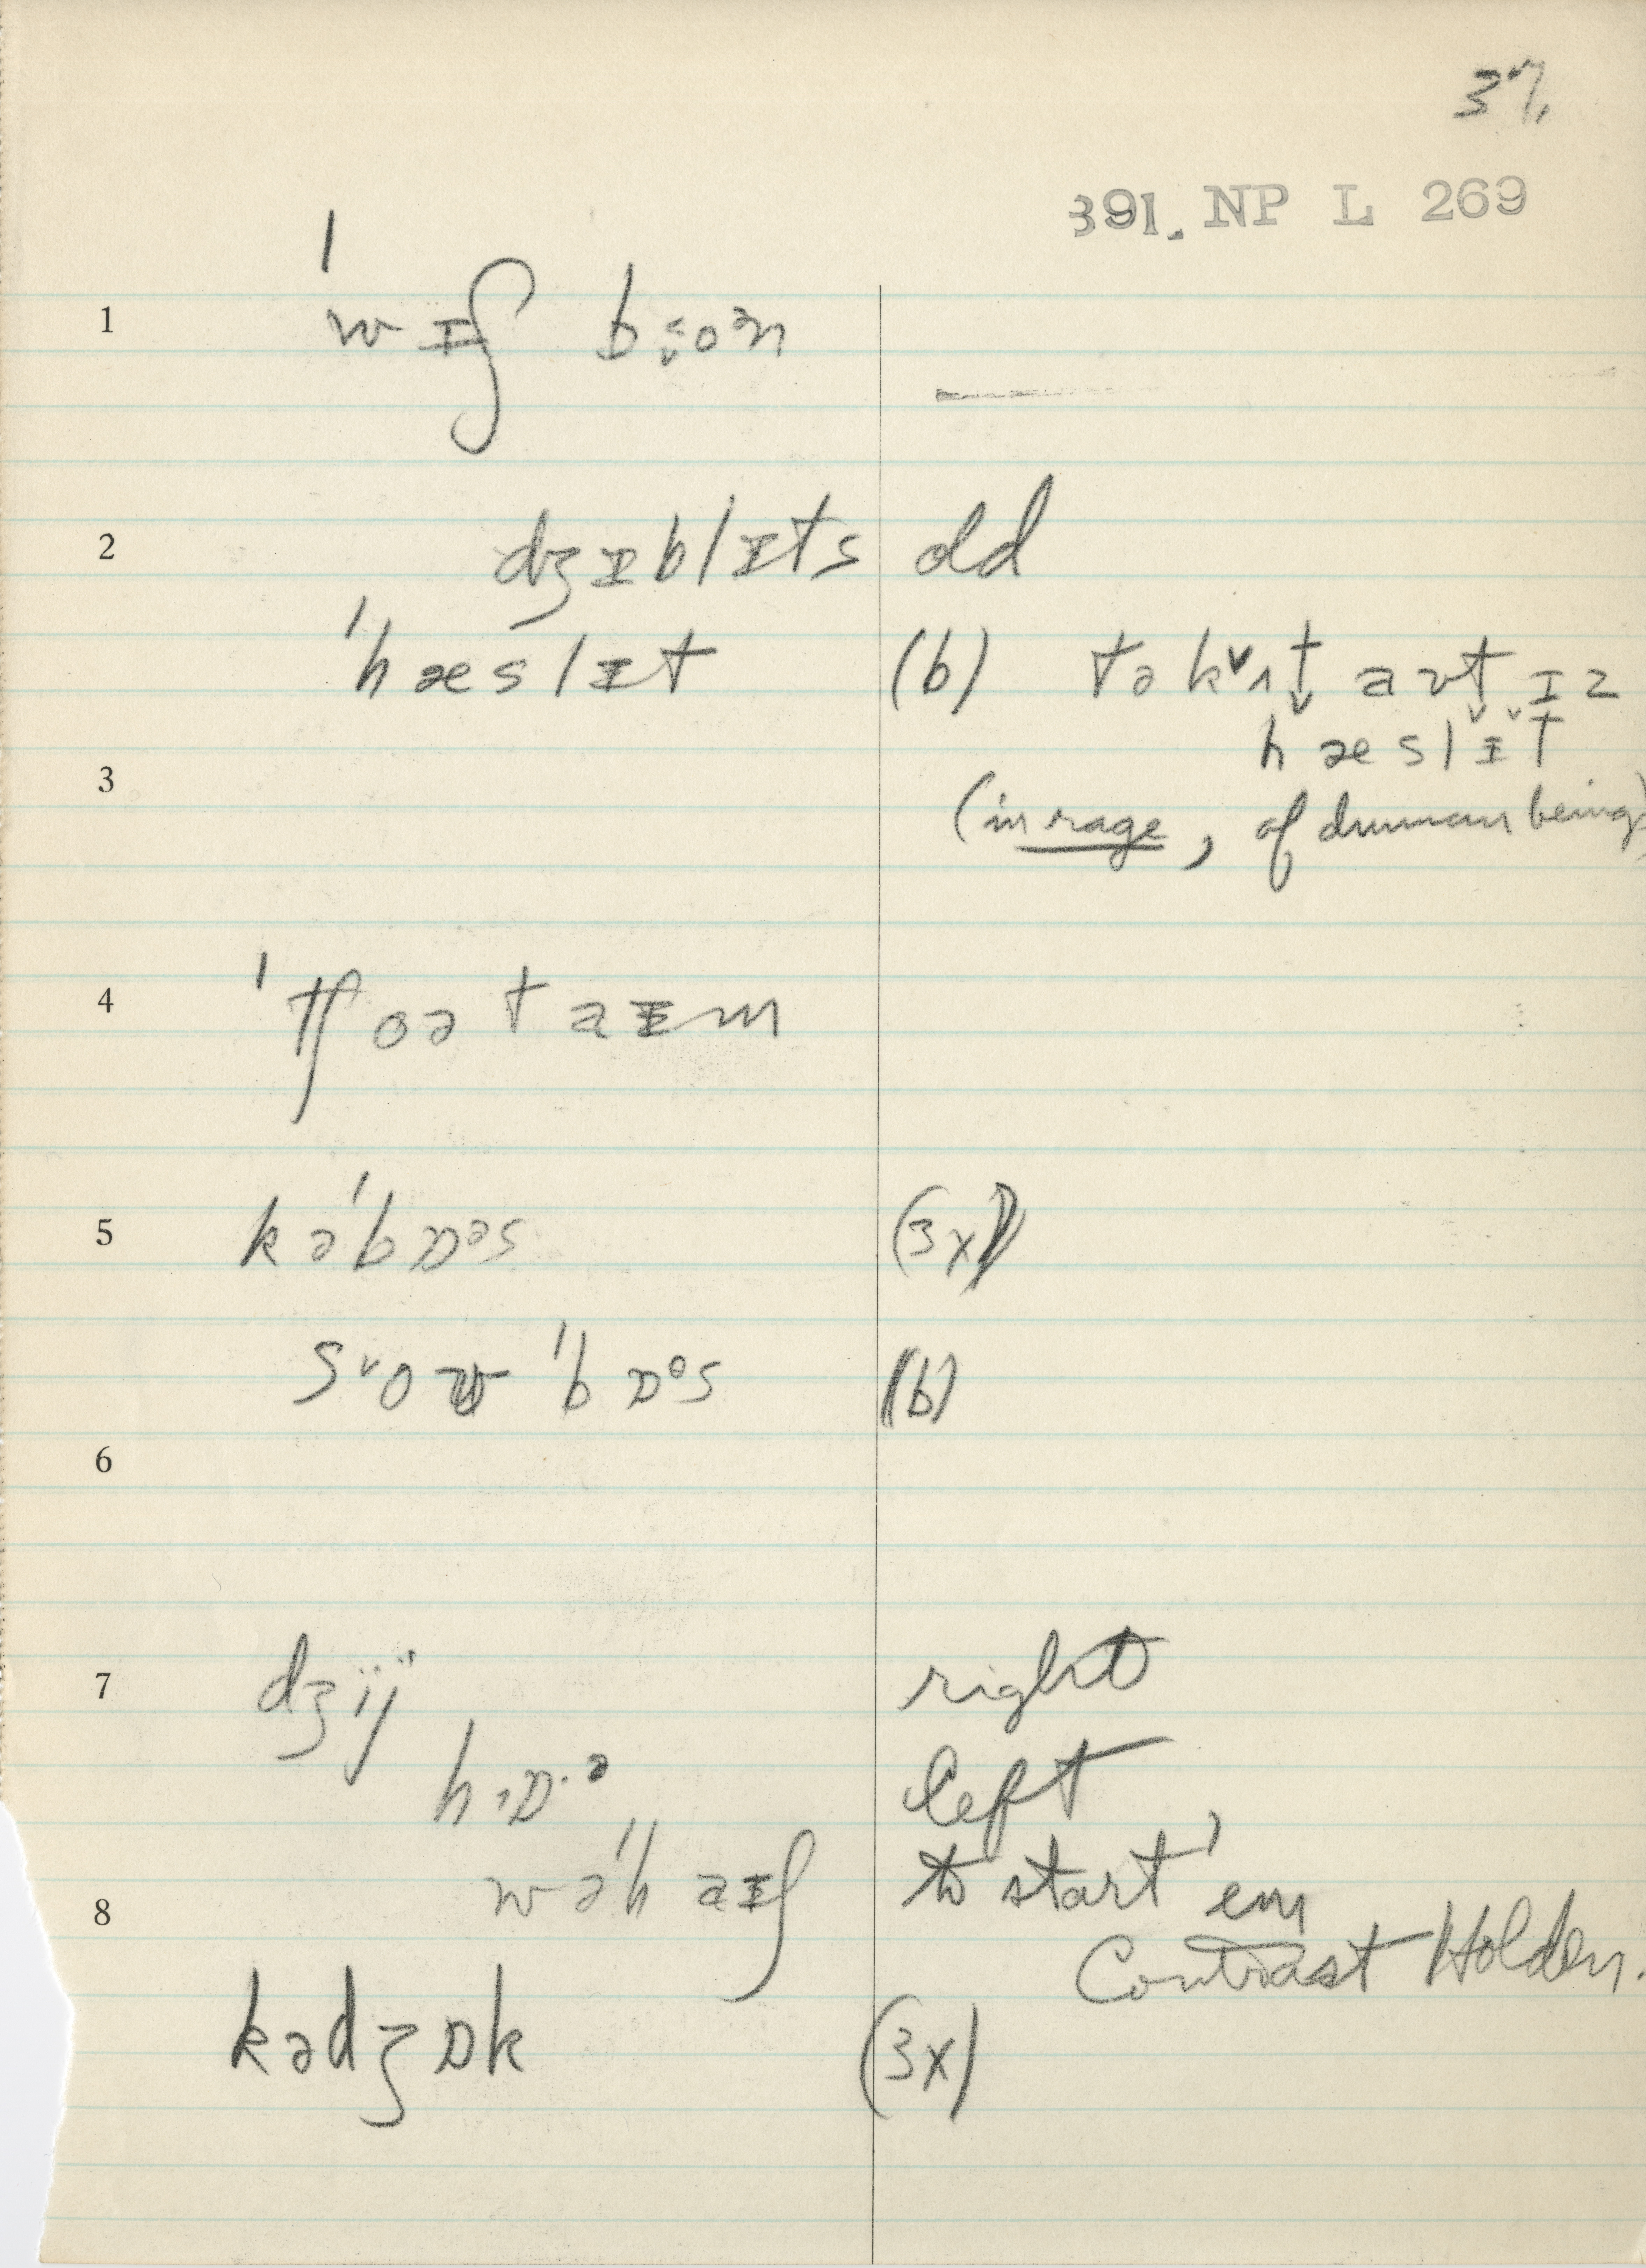 37
391. NP L 269
1 ˈwɪʃ bɔ̬oᵊn
2 dʒɪblɪts old
ˈhæslɪt (b) tə kᵛʌt̬ aʊt̬ ɪz
hæslɪt
3
(in rage, of human being)
4 ˈtʃoətaɪm
5 kəˈbɒᵊs (3x)
ˈbɒᵊs (b)
6
7 dʒij right
hɒ·ᵊ left
wəˈhaɪʃ to start 'em
8
Contrast Holden.
kədʒɒk (3x)